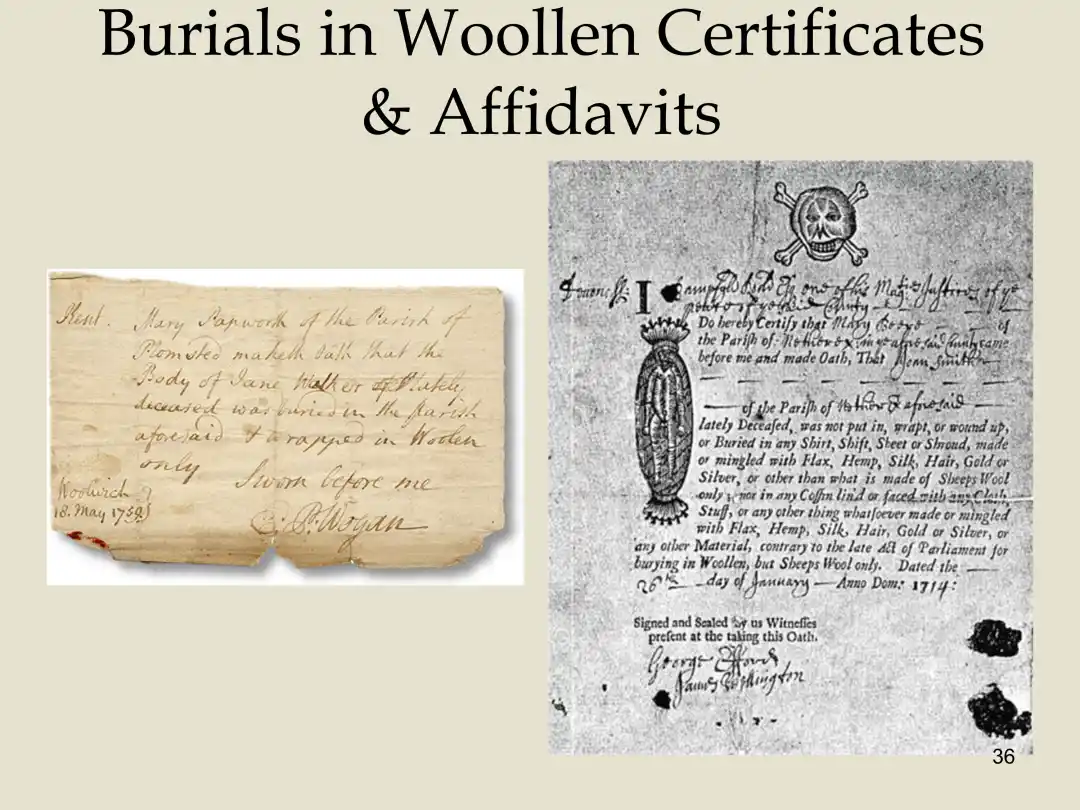 Burials in Woollen Certificates
& Affidavits
Kent. Mary Papworth of the Parish of
Plomsted maketh Oath that the
Body of Jane Walker of lately
deceased was buried in the Parish
aforesaid & wrapped in Woolen
only
Sworn before me
Woolwich
18. May 1759
P. Wogan
I one of his Majties Justices of ye
peace of ye said County
Do hereby Certify that Mary of
the Parish of in ye aforesaid County came
before me and made Oath, That Joan Smith
of the Parish of aforesaid
lately Deceased, was not put in, wrapt, or wound up,
or Buried in any Shirt, Shift, Sheet or Shroud, made
or mingled with Flax, Hemp, Silk, Hair, Gold or
Silver, or other than what is made of Sheeps Wool
only; nor in any Coffin lin'd or faced with any Cloth
Stuff, or any other thing whatsoever made or mingled
with Flax, Hemp, Silk, Hair, Gold or Silver, or
any other Material, contrary to the late Act of Parliament for
burying in Woollen, but Sheeps Wool only. Dated the
26th day of January Anno Dom: 1714:
Signed and Sealed by us Witnesses
present at the taking this Oath.
George
James
36